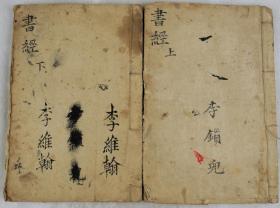 書經上
李鎖兒
書經下
李維翰
李維翰